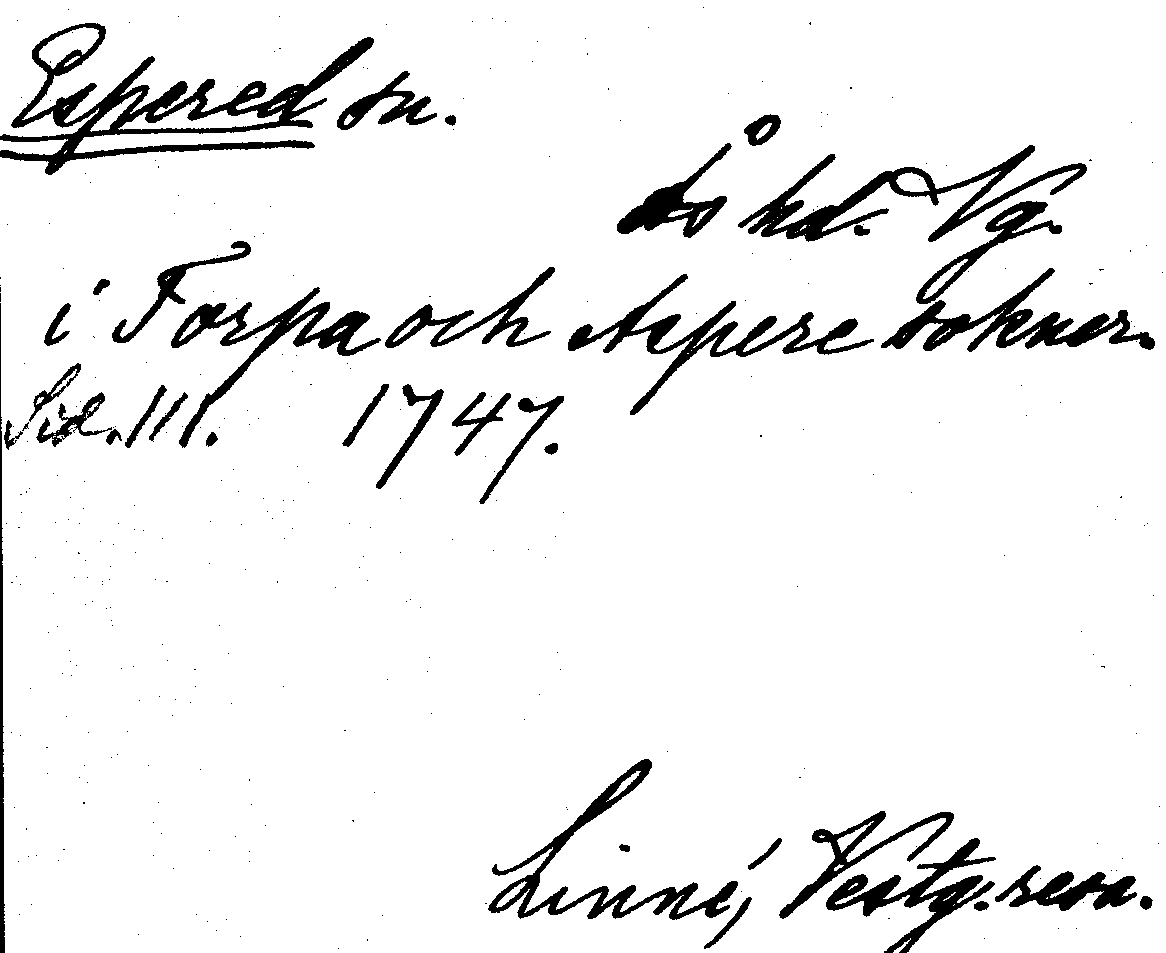 Espered sn.
Ås hd. Vg.
i Torpa och Aspere soknar.
Sid. 111. 1747.
Linné, Vestg. resa.